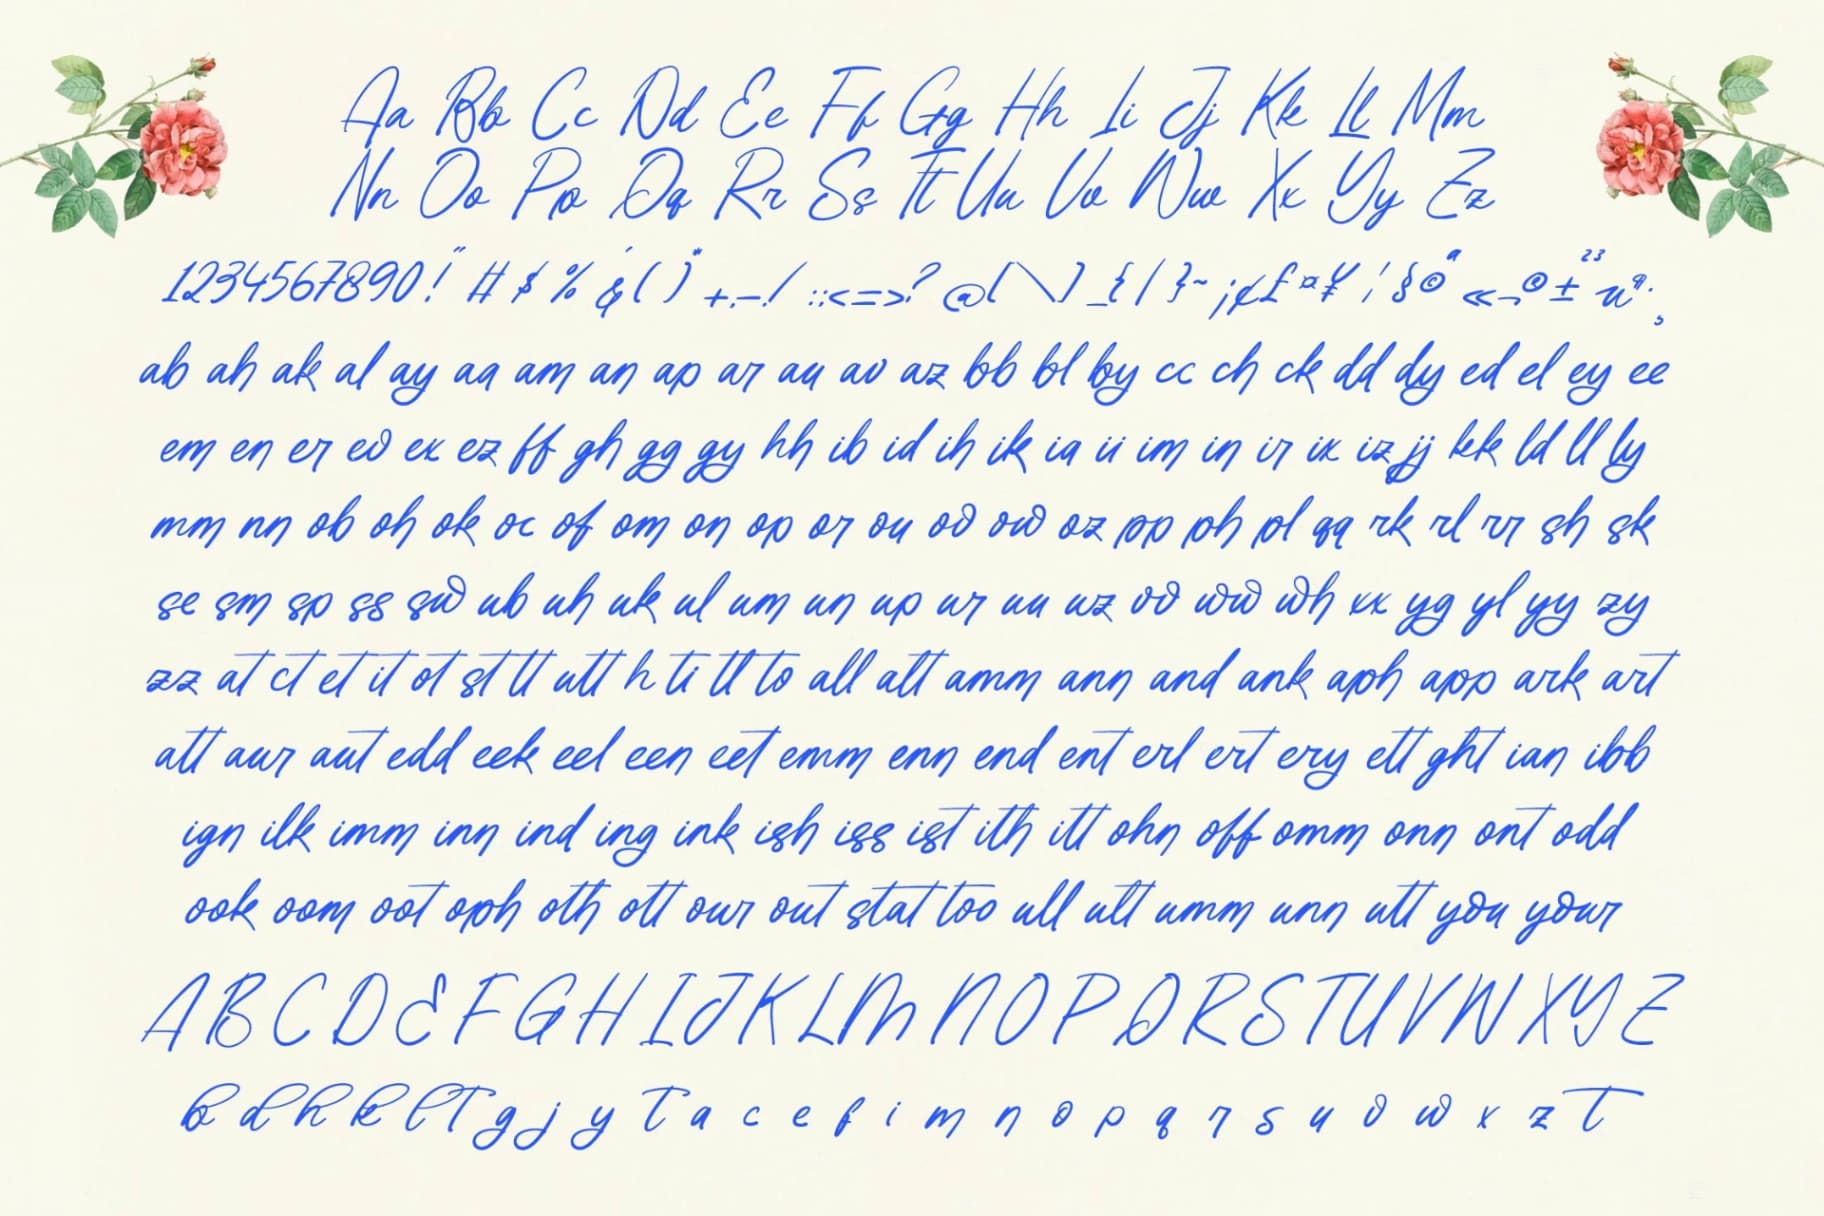 Aa Bb Cc Dd Ee Ff Gg Hh Ii Jj Kk Ll Mm
Nn Oo Pp Qq Rr Ss Tt Uu Vv Ww Xx Yy Zz
1234567890!" # $ % & ( ) * + , - . / : ; < = > ? @ [ \ ] _ { | } ~ ¡ ¢ £ ¤ ¥ ¦ § © ª « ¬ ® ± ² ³ µ ¸
ab ah ak al ay aa am an ap ar au av az bb bl by cc ch ck dd dy ed el ey ee
em en er ev ex ez ff gh gg gy hh ib id ih ik ia ii im in ir ix iz jj kk ld ll ly
mm nn ob oh ok oc of om on op or ou ov ow oz pp ph pl qq rk rl rr sh sk
se sm sp ss sw ub uh uk ul um un up ur uu uz vv ww wh xx yg yl yy zy
zz at ct et it ot st tt utt h ti tl to all alt amm ann and ank aph app ark art
att aur aut edd eek eel een eet emm enn end ent erl ert ery ett ght ian ibb
ign ilk imm inn ind ing ink ish iss ist ith itt ohn off omm onn ont odd
ook oom oot oph oth ott our out stat too ull ult umm unn utt you your
A B C D E F G H I J K L M N O P Q R S T U V W X Y Z
b d h k l T g j y t a c e f i m n o p q r s u v w x z t